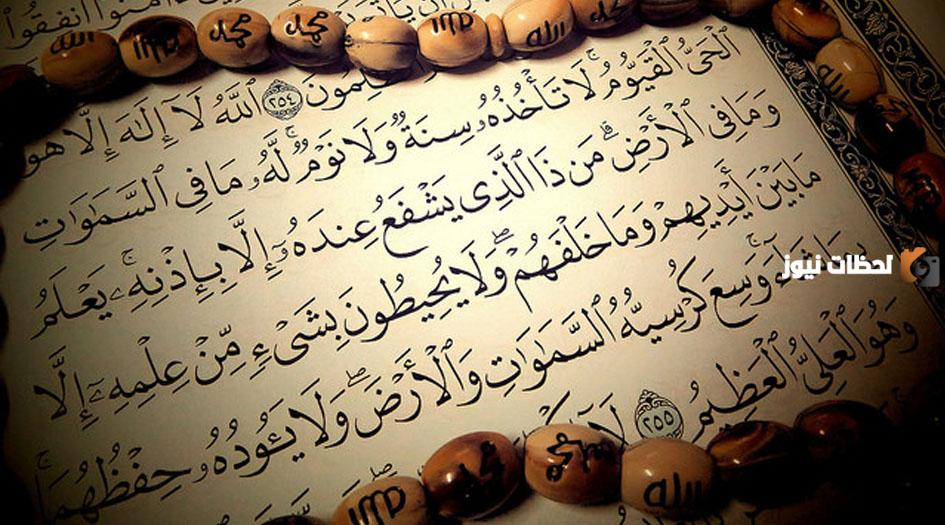 ءَامَنُوٓا۟ أَنفِقُوا۟
الله محمد محمد محمد الله محمد
ٱللَّهُ لَآ إِلَٰهَ إِلَّا هُوَ ٢٥٤
ٱلْحَىُّ ٱلْقَيُّومُ ۚ لَا تَأْخُذُهُۥ سِنَةٌ وَلَا نَوْمٌ ۚ لَّهُۥ مَا فِى ٱلسَّمَٰوَٰتِ
وَمَا فِى ٱلْأَرْضِ ۗ مَن ذَا ٱلَّذِى يَشْفَعُ عِندَهُۥٓ إِلَّا بِإِذْنِهِۦ ۚ يَعْلَمُ
مَا بَيْنَ أَيْدِيهِمْ وَمَا خَلْفَهُمْ ۖ وَلَا يُحِيطُونَ بِشَىْءٍ مِّنْ عِلْمِهِۦٓ إِلَّا
لحظات نيوز
بِمَا شَآءَ ۚ وَسِعَ كُرْسِيُّهُ ٱلسَّمَٰوَٰتِ وَٱلْأَرْضَ ۖ وَلَا يَـُٔودُهُۥ حِفْظُهُمَا ۚ
وَهُوَ ٱلْعَلِىُّ ٱلْعَظِيمُ ٢٥٥ لَآ
محمد محمد محمد الله